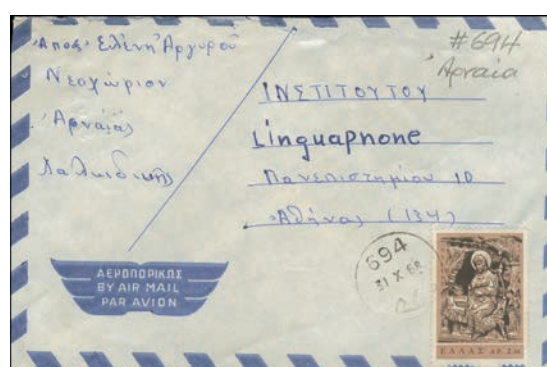 Αποσ. Ελένη Αργυρού
Νεοχώριον
Αρναίας
Χαλκιδικής
#694
Αρναία
ΙΝΣΤΙΤΟΥΤΟΥ
Linguaphone
Πανεπιστημίου 10
Αθήνας (134)
694
31 X 68
ΑΕΡΟΠΟΡΙΚΩΣ
BY AIR MAIL
PAR AVION
ΕΛΛΑΣ ΔΡ.